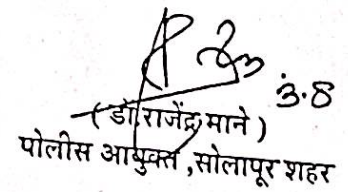 ३.८
( डॉ. राजेंद्र माने )
पोलीस आयुक्त ,सोलापूर शहर